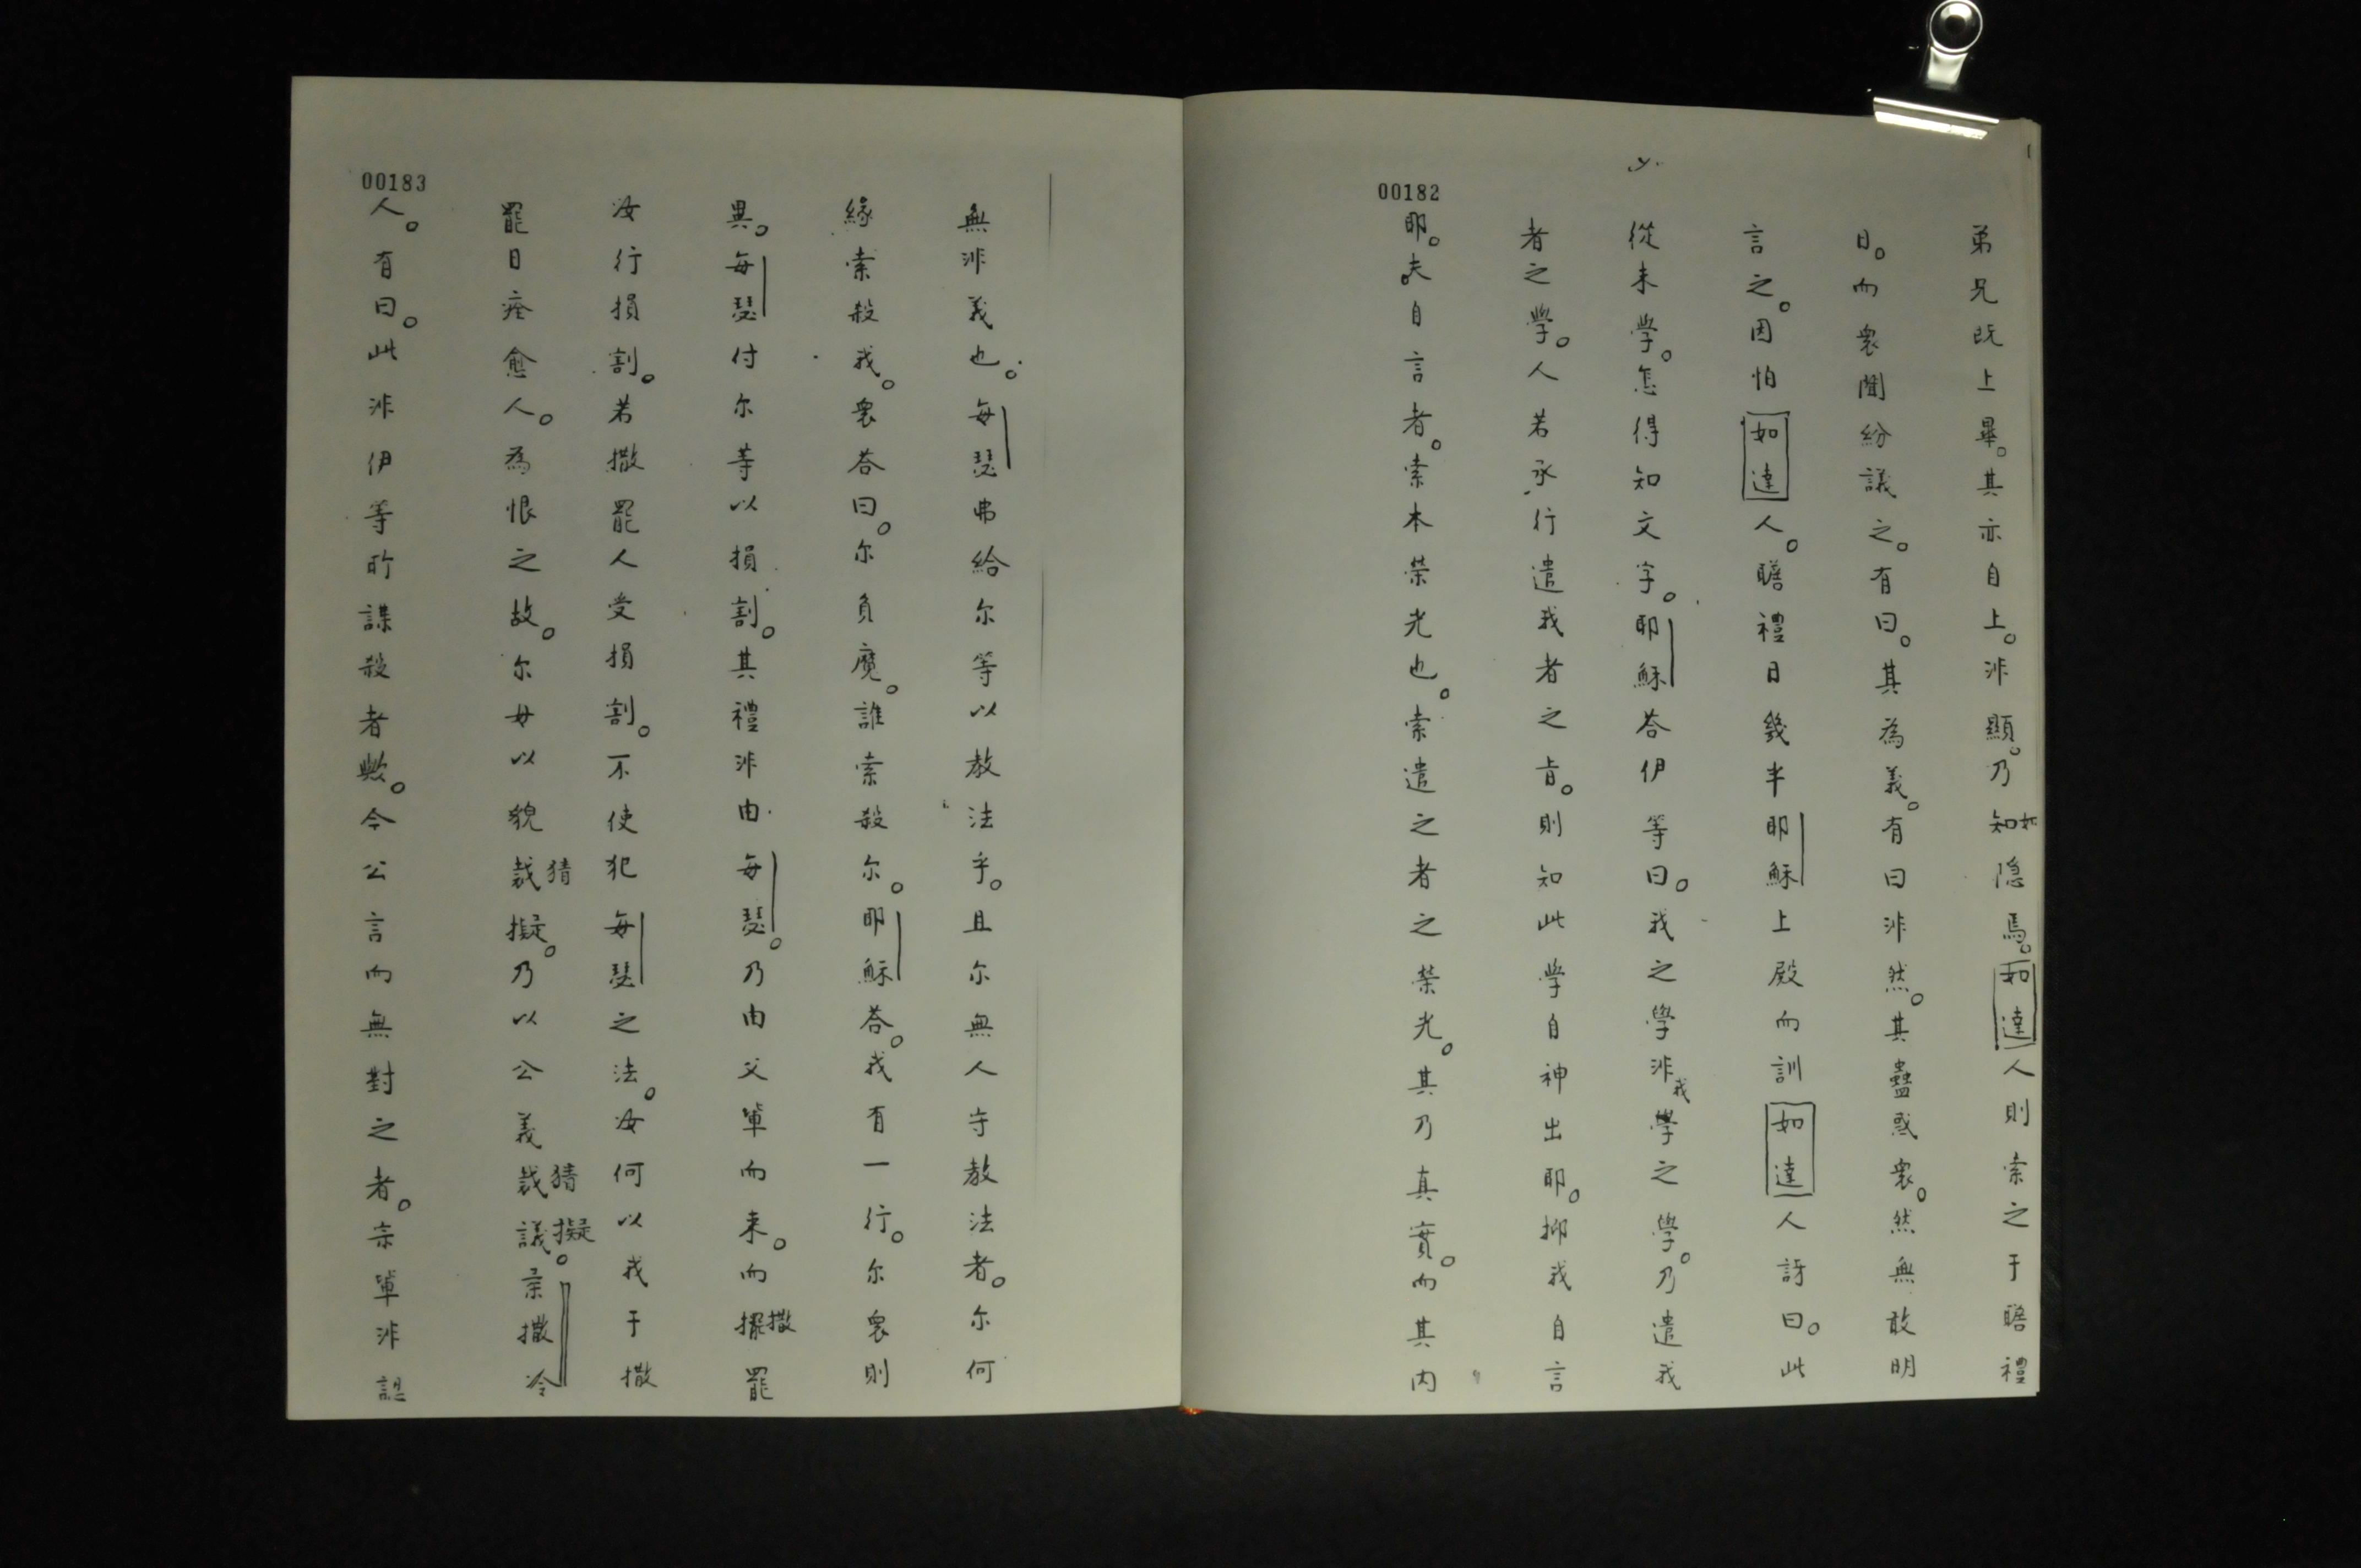 弟兄既上畢。其亦自上。非顯。乃知如隐焉。如達人則索之于瞻禮
日。而衆聞紛議之。有曰。其為義。有曰非然。其蠱惑衆。然無敢明
言之。因怕如達人。瞻禮日幾半耶穌上殿而訓如達人訝曰。此
從未學。怎得知文字。耶穌荅伊等曰。我之學非我學之學。乃遣我
者之學。人若承行遣我者之旨。則知此學自神出耶。抑我自言
耶。夫自言者。索本荣光也。索遣之者之荣光。其乃真實。而其内
00182
無非義也。每瑟弗給尔等以教法乎。且尔無人守教法者。尔何
緣索殺我。衆荅曰。尔負魔。誰索殺尔。耶穌荅。我有一行。尔衆則
異。每瑟付尔等以損割。其禮非由每瑟。乃由父軰而来。而擺撒罷
汝行損割。若撒罷人受損割。不使犯每瑟之法。汝何以我于撒
罷日痊愈人。為恨之故。尔毋以貌裁猜擬。乃以公義裁猜議擬。柔撒冷
人。有曰。此非伊等所謀殺者歟。今公言而無對之者。宗軰非認
00183